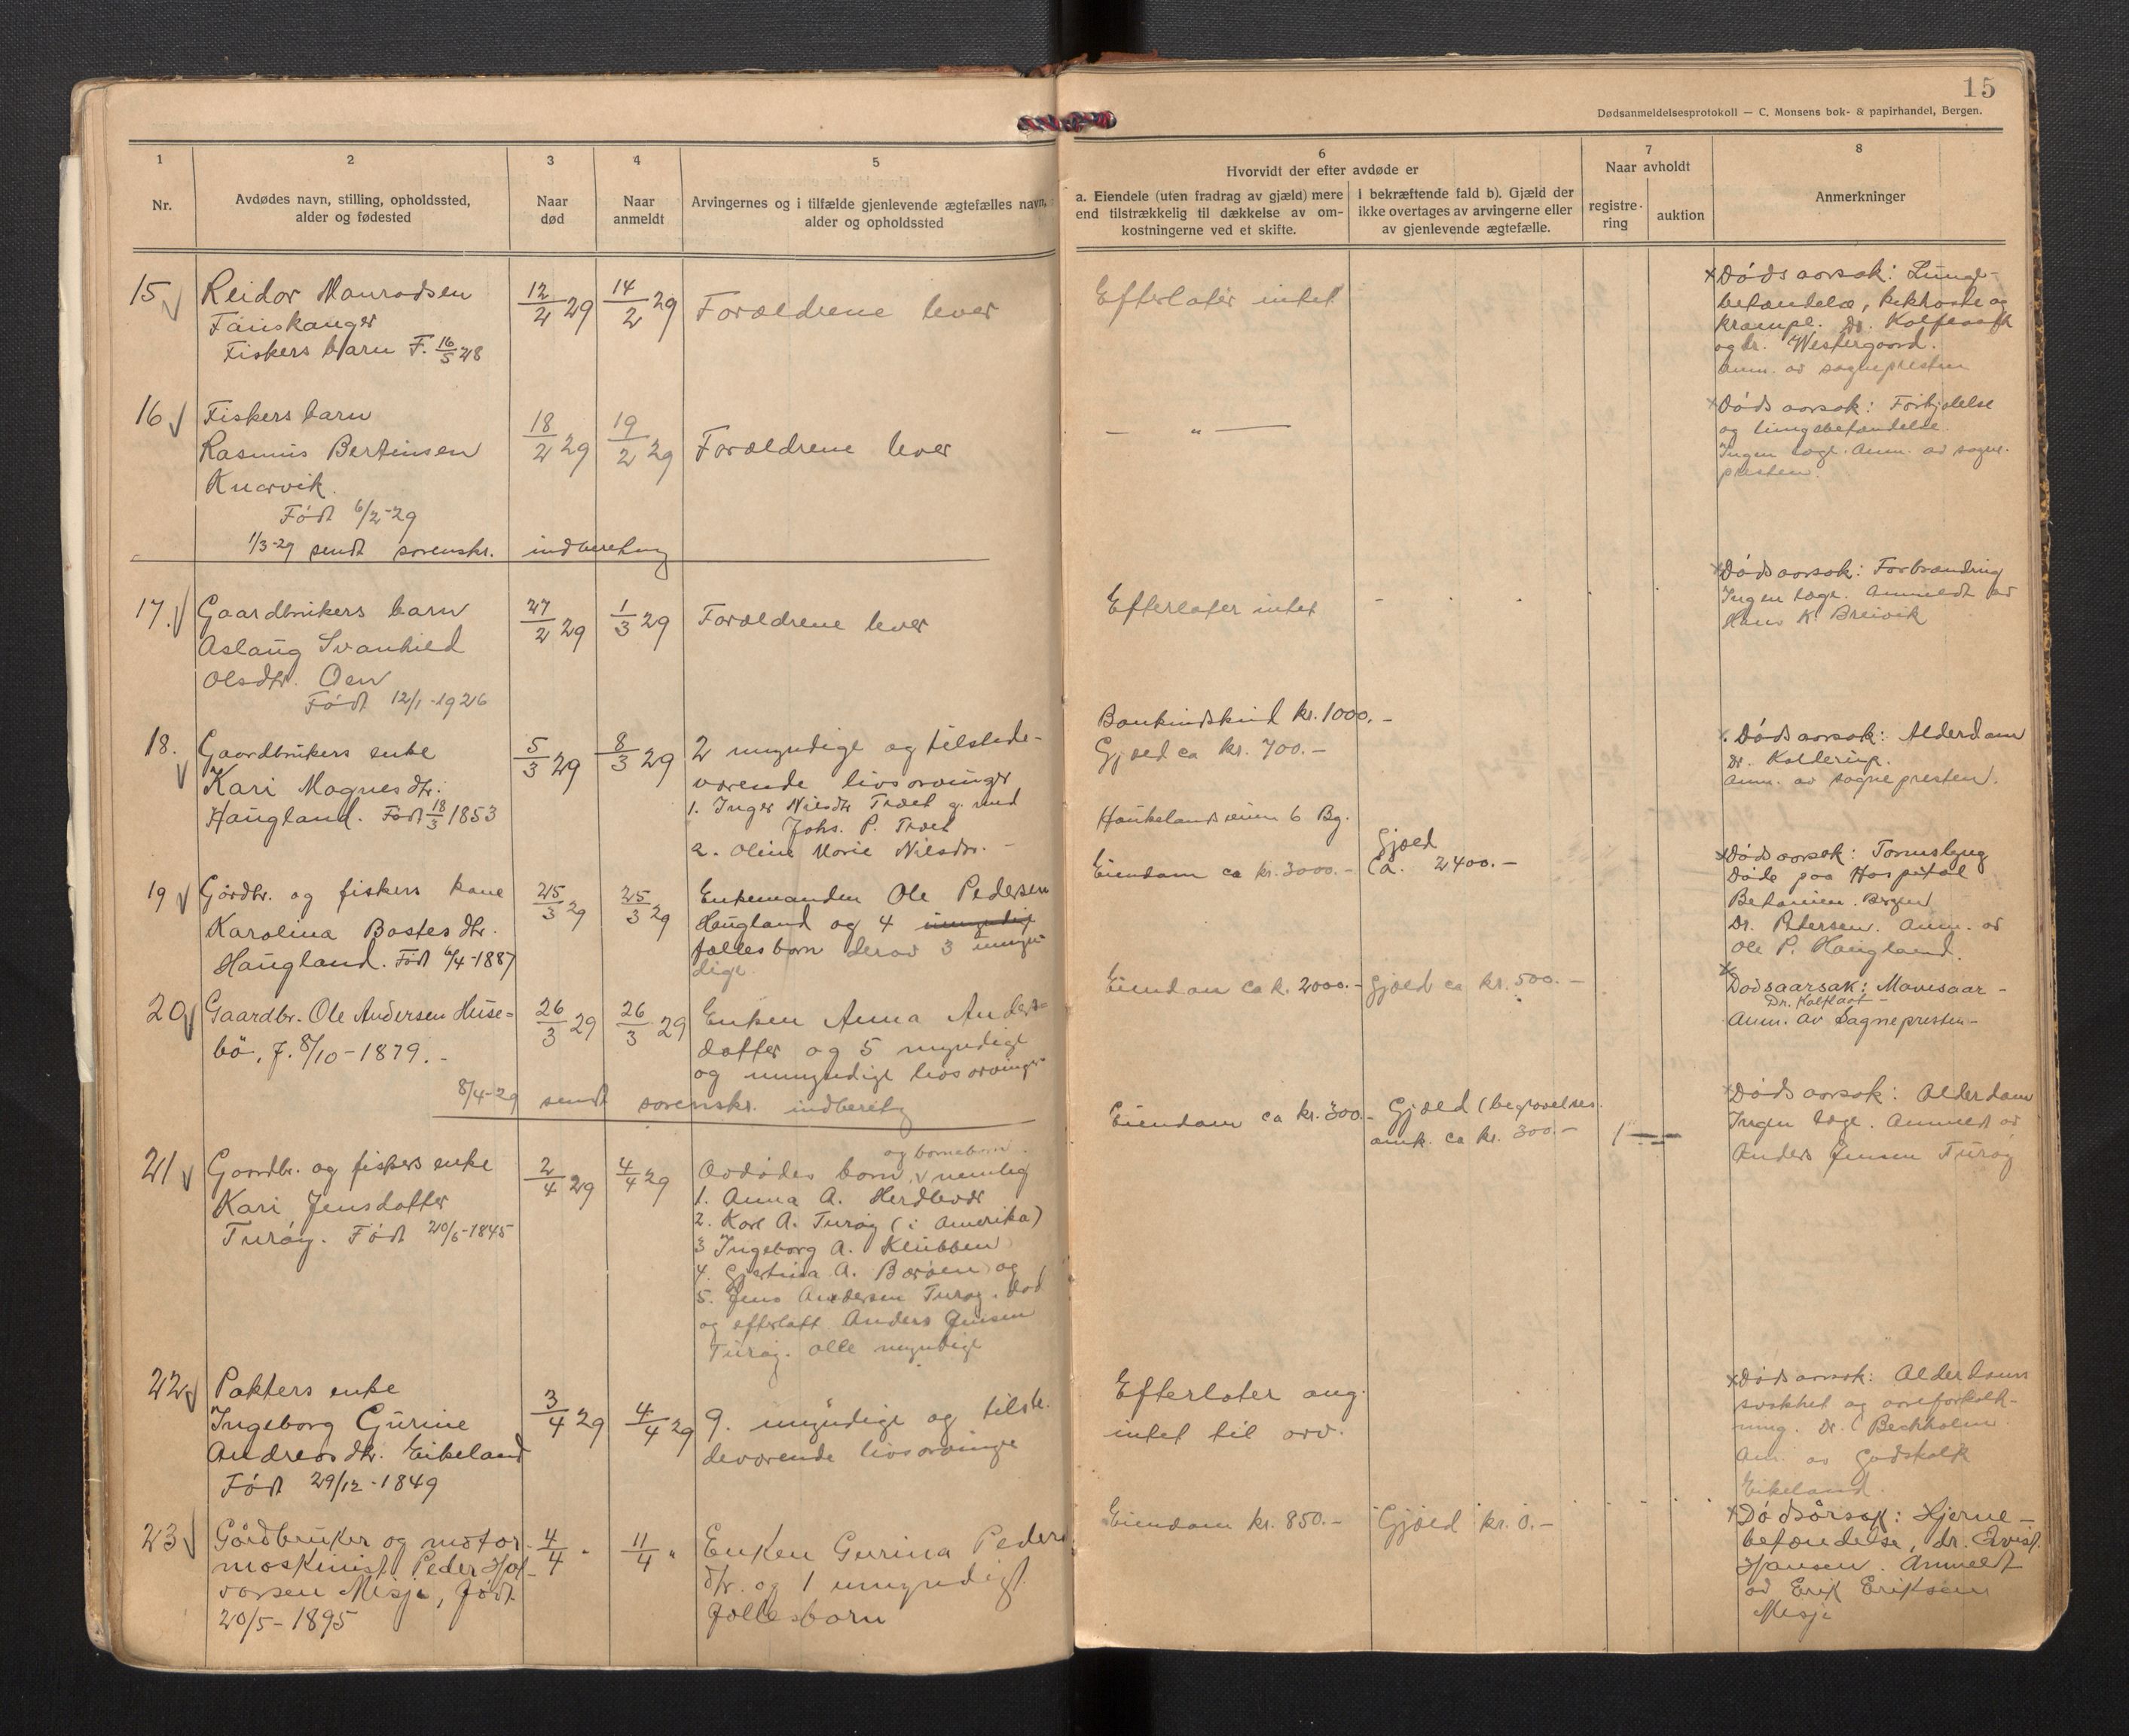 15
Dødsanmeldelsesprotokoll — C. Monsens bok- & papirhandel, Bergen.
1
Nr.
2
Avdødes navn, stilling, opholdssted,
alder og fødested
3
Naar
død
4
Naar
anmeldt
5
Arvingernes og i tilfælde gjenlevende ægtefælles navn,
alder og opholdssted
6
Hvorvidt der efter avdøde er
a. Eiendele (uten fradrag av gjæld) mere
end tilstrækkelig til dækkelse av om-
kostningerne ved et skifte.
I bekræftende fald b). Gjæld der
ikke overtages av arvingerne eller
av gjenlevende ægtefælle.
7
Naar avholdt
registre-
ring
auktion
8
Anmerkninger
15
Reidar Monradsen
Fanskanger
Fiskers barn F. 16/5 28
12/2 29
14/2 29
Forældrene lever
Efterlater intet
Dødsaarsak: Lunge-
betændelse, kikhoste og
krampe. Dr. Kolflaath
og dr. Westergaard.
Anm. av sognepresten
16
Fiskers barn
Rasmus Bertinsen
Knarvik.
Født 6/2-29
18/2 29
19/2 29
Forældrene lever
— " —
Dødsaarsak: Forkjølelse
og lungebetændelse.
Ingen læge. Anm. av sogne-
presten.
1/3-29 sendt sorenskr. indberetng
17.
Gaardbrukers barn
Aslaug Svanhild
Olsdtr. Oen
Født 12/1-1926
27/2 29
1/3 29
Forældrene lever
Efterlater intet
Dødsaarsak: Forbrænding
Ingen læge. Anmeldt av
Hans K. Breivik
18.
Gaardbrukers enke
Kari Magnesdtr.
Haugland. Født 18/3 1853
5/3 29
8/3 29
2 myndige og tilstede-
værende livsarvinger
1. Inger Nilsdtr Træet g. med
Johs. P. Træet
2. Oline Marie Nilsdtr. -
Bankindskud kr. 1000.-
Gjæld ca kr. 700.-
Dødsaarsak: Alderdom
Dr. Kolderup.
Anm. av sognepresten.
19
Gårdbr. og fiskers kone
Karolina Bastesdtr.
Haugland. Født 6/4-1887
25/3 29
25/3 29
Enkemanden Ole Pedersen
Haugland og 4 umyndig
fællesbarn derav 3 umyn-
dige.
6 Bg.
Eiendom ca kr. 3000.-
Gjæld
Ca. 2400.-
Dødsaarsak: Tarmslyng
Døde paa Hospital
Betanien. Bergen
Dr. Petersen. Anm. av
Ole P. Haugland.
20
Gaardbr. Ole Andersen Huse-
bö, f. 8/10-1879.-
26/3 29
26/3 29
Enken Anna Anders-
datter og 5 myndige
og umyndige livsarvinger
Eiendom ca k. 2000.-
Gjæld ca kr. 500.-
Dødsaarsak: Mavesaar-
Dr. Kolflaat-
Anm. av Sognepresten-
8/4-29 sendt sorenskr. indberetg
21
Gaardbr. og fiskers enke
Kari Jensdatter
Turøy. Født 20/6-1845
2/4 29
4/4 29
og barnebarn.
Avdødes barn, nemlig
1. Anna A. Herdlevær
2. Karl A. Turøy (i Amerika)
3 Ingeborg A. Klubben
4. Gjertina A. Børøen og
5. Jens Andersen Turøy. død
og efterlatt Anders Jensen
Turøy. alle myndige
Eiendom ca kr. 300.-
Gjæld (begravelses
omk. ca kr. 300.-
Dødsaarsak: Alderdom
Ingen læge. Anmeldt av
Anders Jensen Turøy
22
Pakters enke
Ingeborg Gurine
Andreasdtr. Eikeland
Født 29/12-1849
3/4 29
4/4 29
9. myndige og tilste-
deværende livsarvinge
Efterlater ang.
intet til arv.
Dødsaarsak: Alderdoms
svakhet og aareforkalk-
ning. Dr. Bechholm
An. av Godskalk
Eikeland.
23
Gårdbruker og motor-
maskinist Peder Hal-
vorsen Misje, født
20/5-1895
4/4 "
11/4 "
Enken Gurina Peders
dtr. og 1 umyndigt
fællesbarn
Eiendom kr. 850.-
Gjæld kr. 0.-
Dødsårsak: Hjerne-
betændelse, dr. Qvist
Hansen. Anmeldt
av Erik Eriksen
Misje